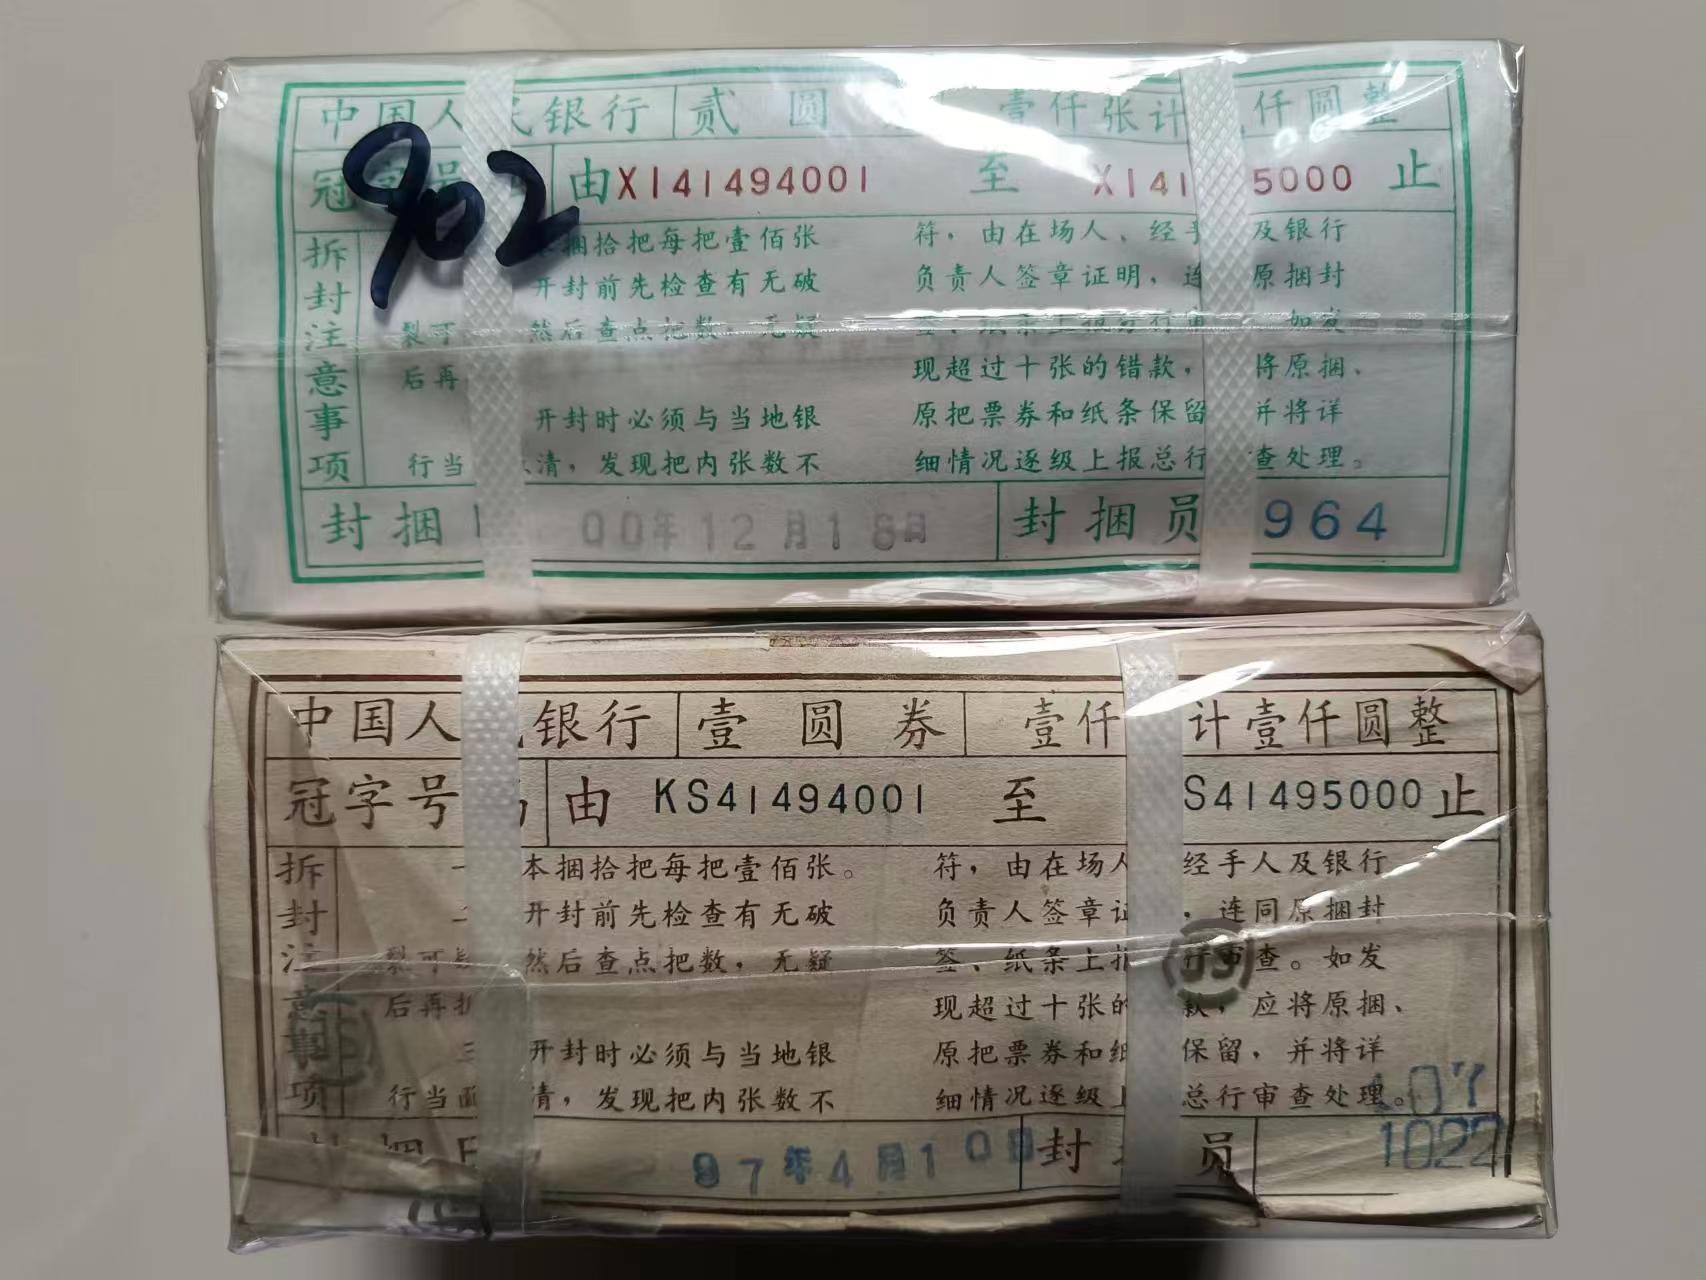 中国人民银行 贰圆 壹仟张计 仟圆整
902
冠字号 由X141494001 至 X141 5000 止
拆封注意事项
本捆拾把每把壹佰张
开封前先检查有无破
裂可 然后查点把数，无疑
后再
开封时必须与当地银
行当 清，发现把内张数不
符，由在场人、经手 及银行
负责人签章证明，连 原捆封
签、纸条上报分行审 如发
现超过十张的错款， 将原捆、
原把票券和纸条保留 并将详
细情况逐级上报总行 查处理。
封捆 00年12月18日 封捆员 964
中国人民银行 壹圆券 壹仟 计壹仟圆整
冠字号码 由 KS41494001 至 S41495000 止
拆封注意事项
一 本捆拾把每把壹佰张。
开封前先检查有无破
裂可疑 然后查点把数，无疑
后再拆
三 开封时必须与当地银
行当面 清，发现把内张数不
符，由在场人 经手人及银行
负责人签章证 ，连同原捆封
签、纸条上报 行审查。如发
现超过十张的 款，应将原捆、
原把票券和纸 保留，并将详
细情况逐级上 总行审查处理。
107
封捆日 97年4月10日 封 员 1022